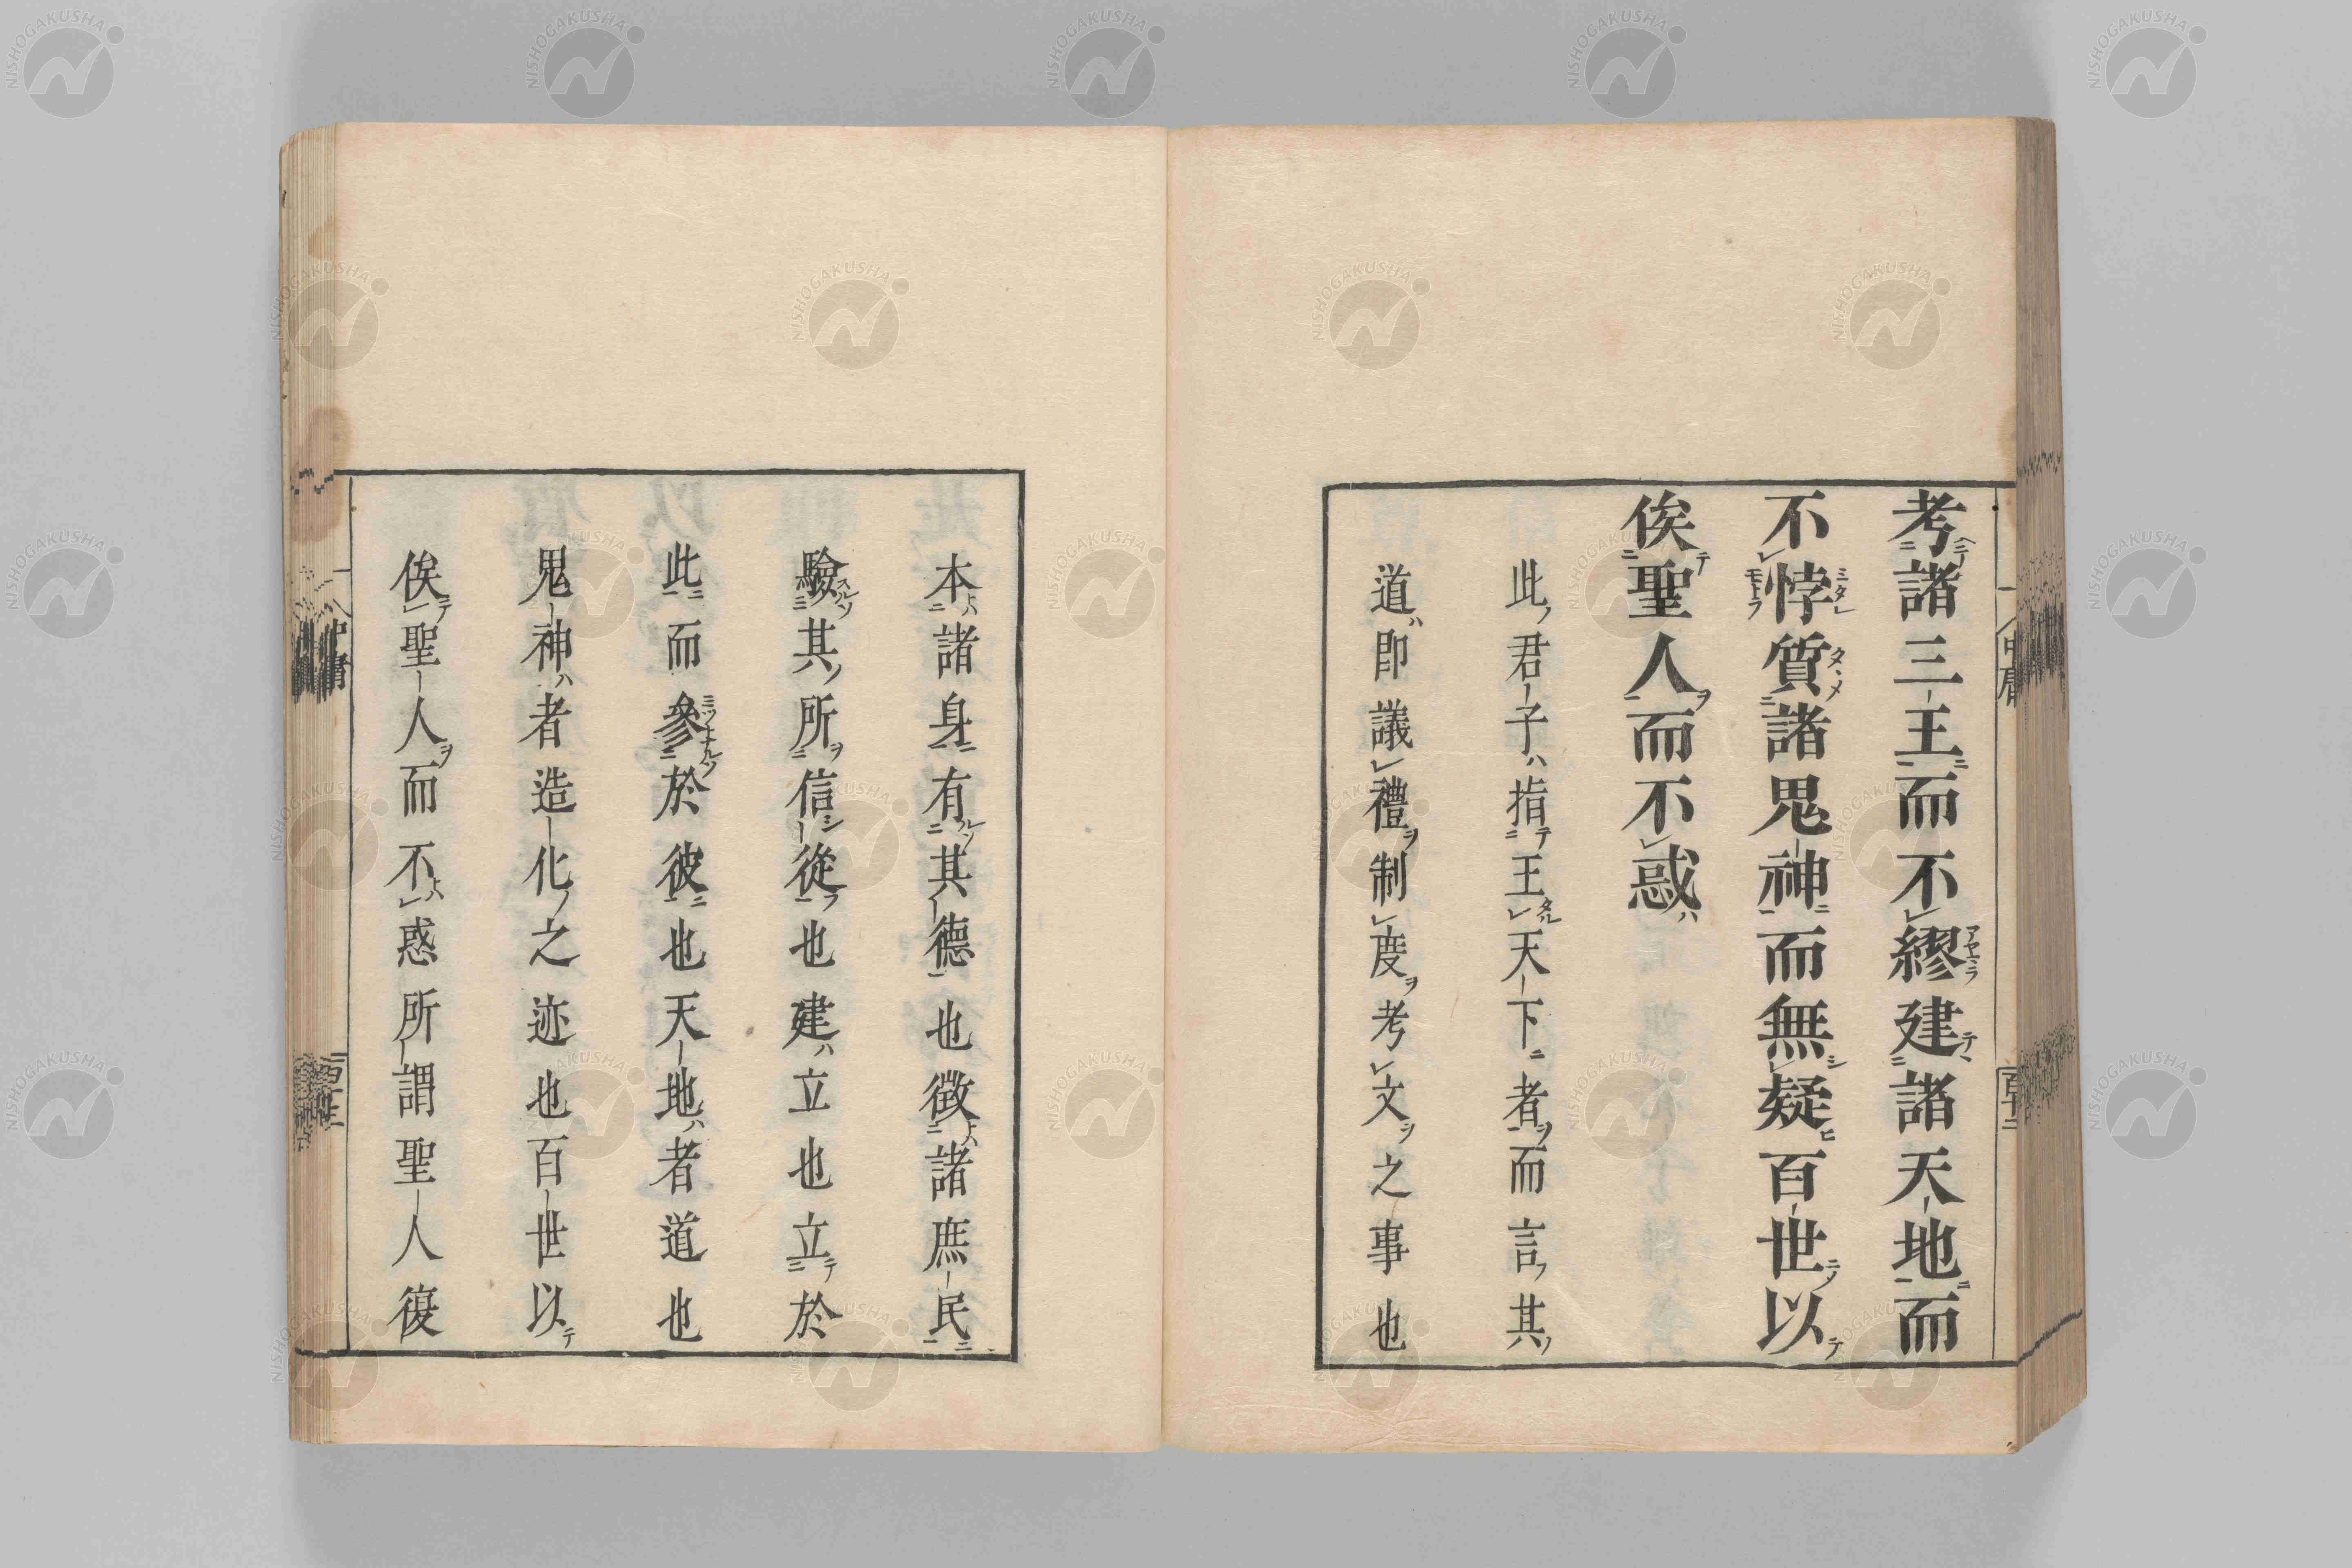 考諸三王而不繆建諸天地而
不悖質諸鬼神而無疑百世以
俟聖人而不惑
此君子指王天下者而言其
道即議禮制度考文之事也
本諸身有其德也徵諸庶民
驗其所信從也建立也立於
此而參於彼也天地者道也
鬼神者造化之迹也百世以
俟聖人而不惑所謂聖人復
中庸
NISHOGAKUSHA